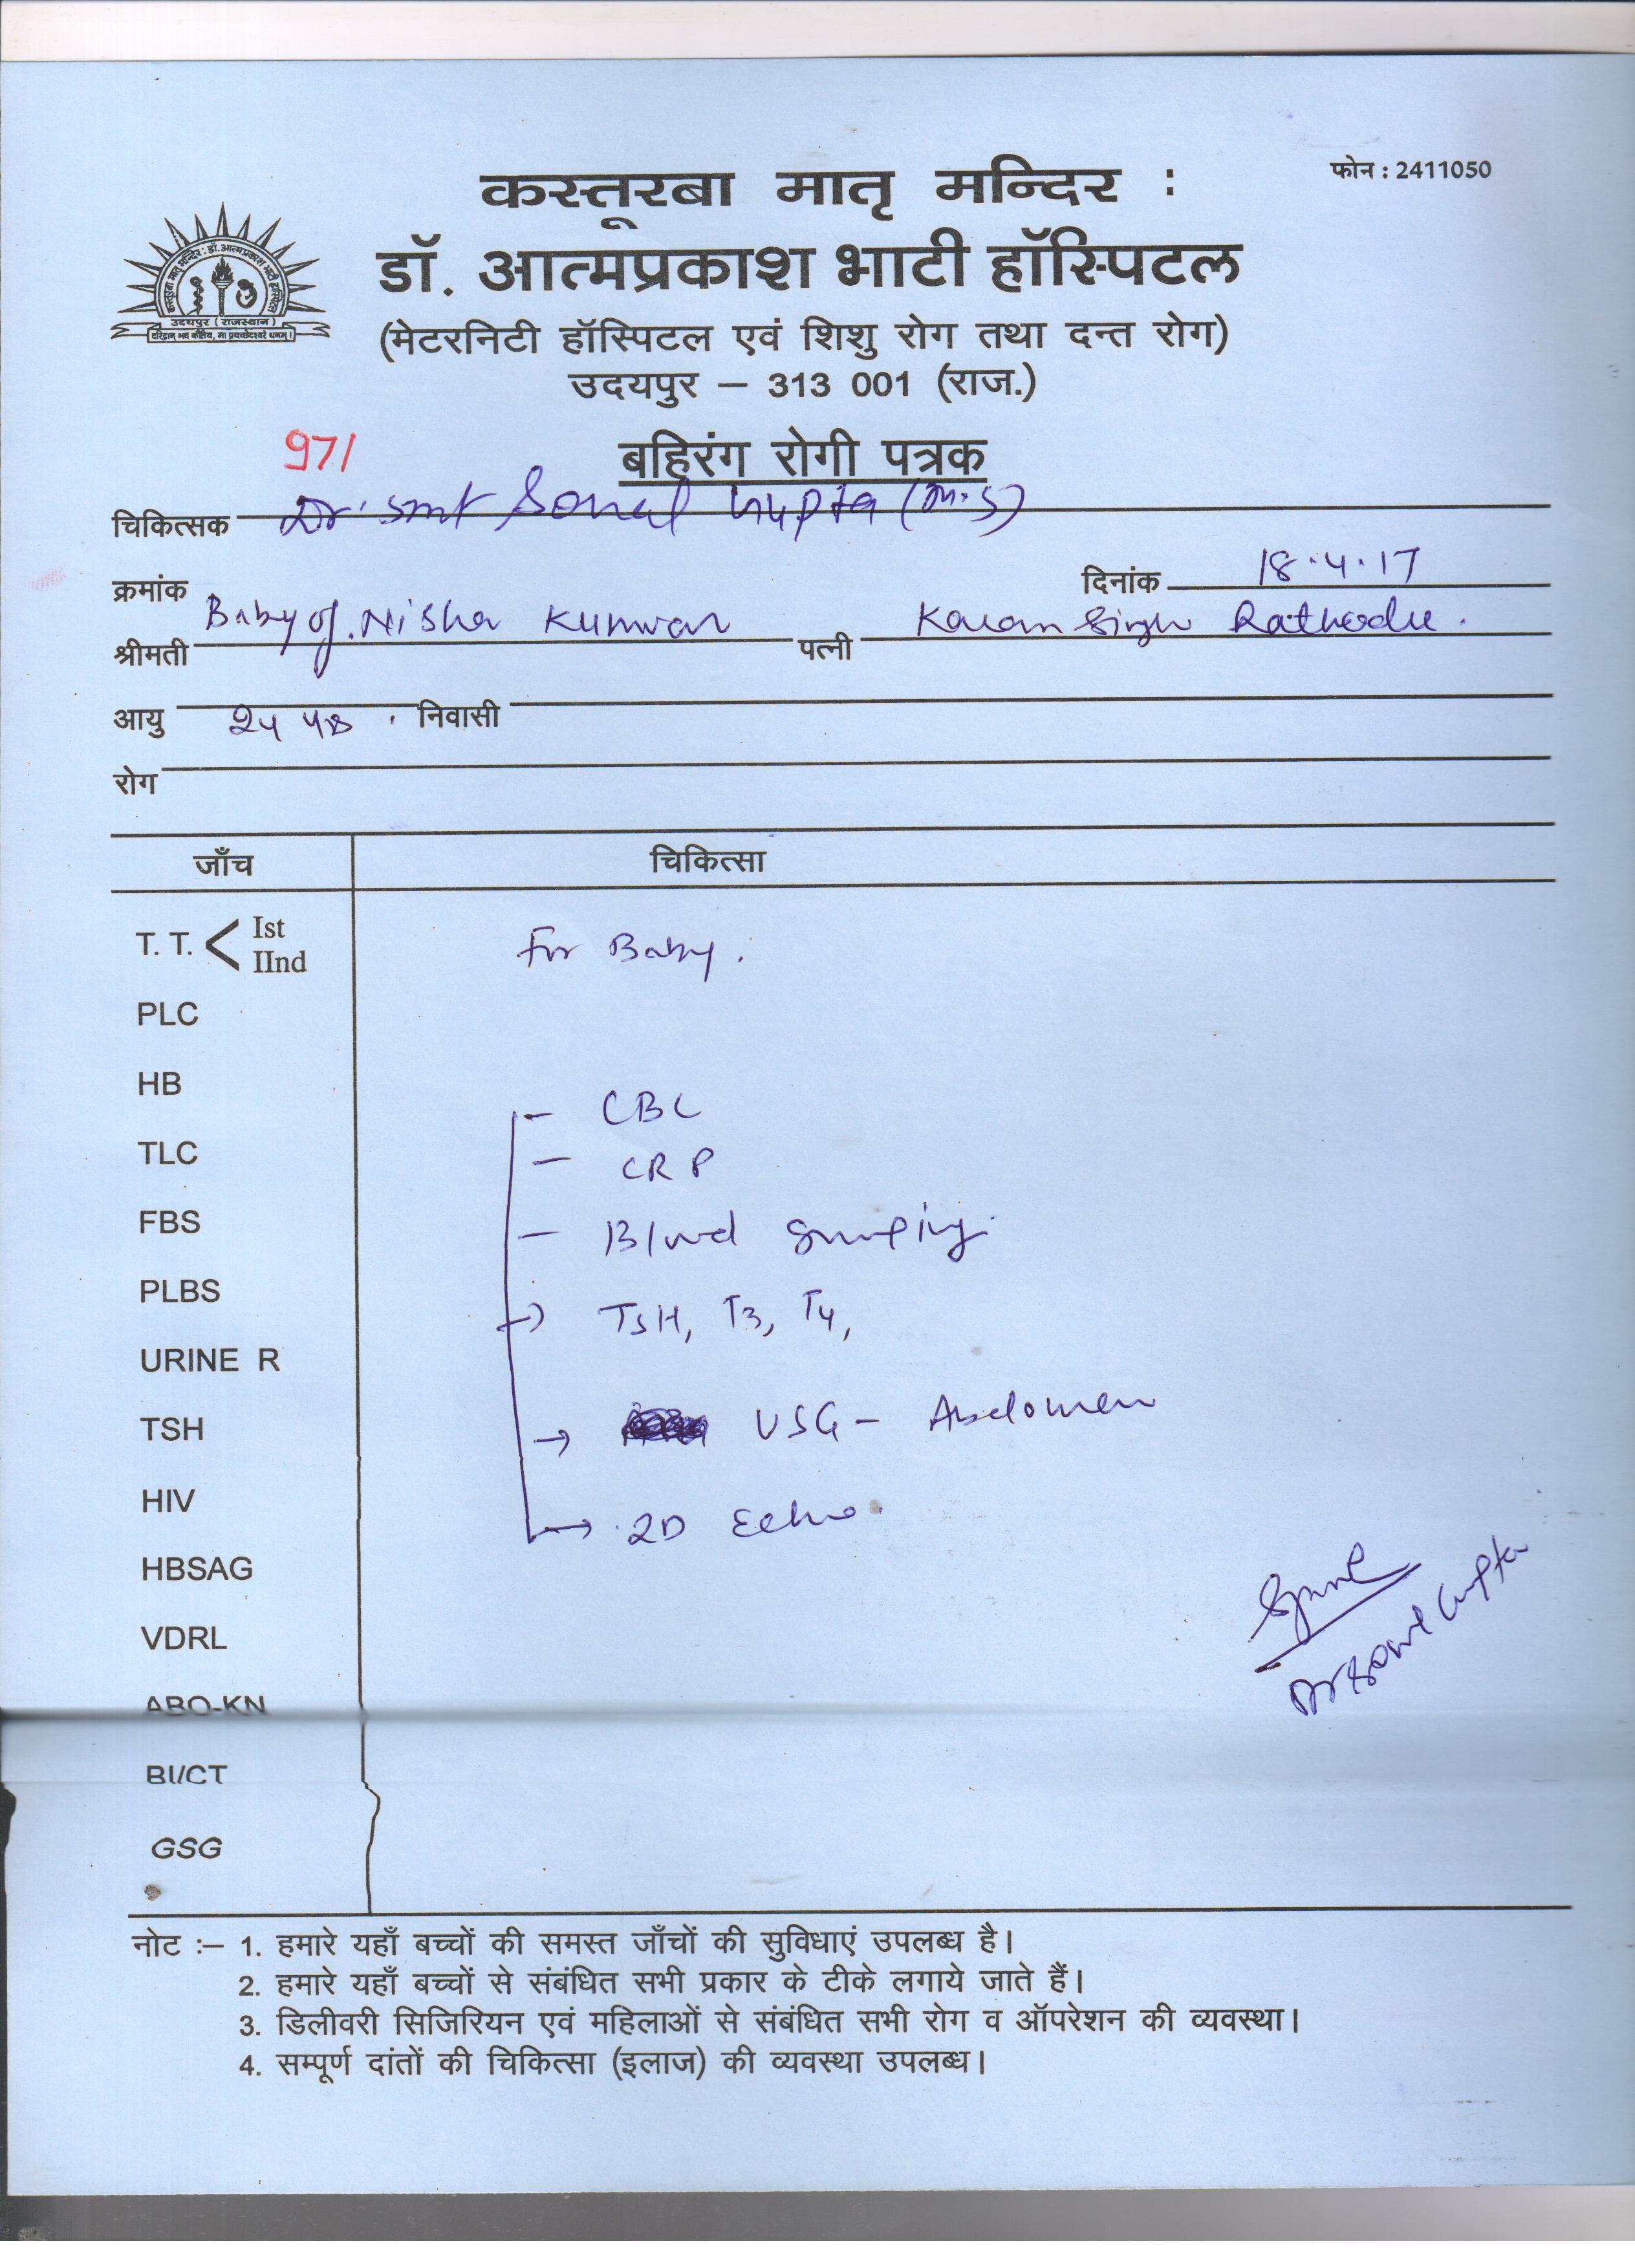 फोन : 2411050
कस्तूरबा मातृ मन्दिर :
डॉ. आत्मप्रकाश भाटी हॉस्पिटल
(मेटरनिटी हॉस्पिटल एवं शिशु रोग तथा दन्त रोग)
उदयपुर (राजस्थान)
उदयपुर – 313 001 (राज.)
971
बहिरंग रोगी पत्रक
चिकित्सक Dr. Smt Sonal Gupta (M.S)
क्रमांक दिनांक 18.4.17
श्रीमती Baby of. Nisha Kunwar पत्नी Karan Singh
आयु 24 निवासी
रोग
जाँच चिकित्सा
T. T. < Ist
IInd
For Baby.
PLC
HB
- CBC
TLC
- CRP
FBS
- Blood Grouping.
PLBS
→ TSH, T3, T4,
URINE R
TSH
→ USG - Abdomen
HIV
→ 2D Echo.
HBSAG
VDRL
Dr Sonal Gupta
ABO-KN
BI/CT
GSG
नोट :– 1. हमारे यहाँ बच्चों की समस्त जाँचों की सुविधाएं उपलब्ध है।
2. हमारे यहाँ बच्चों से संबंधित सभी प्रकार के टीके लगाये जाते हैं।
3. डिलीवरी सिजिरियन एवं महिलाओं से संबंधित सभी रोग व ऑपरेशन की व्यवस्था।
4. सम्पूर्ण दांतों की चिकित्सा (इलाज) की व्यवस्था उपलब्ध।